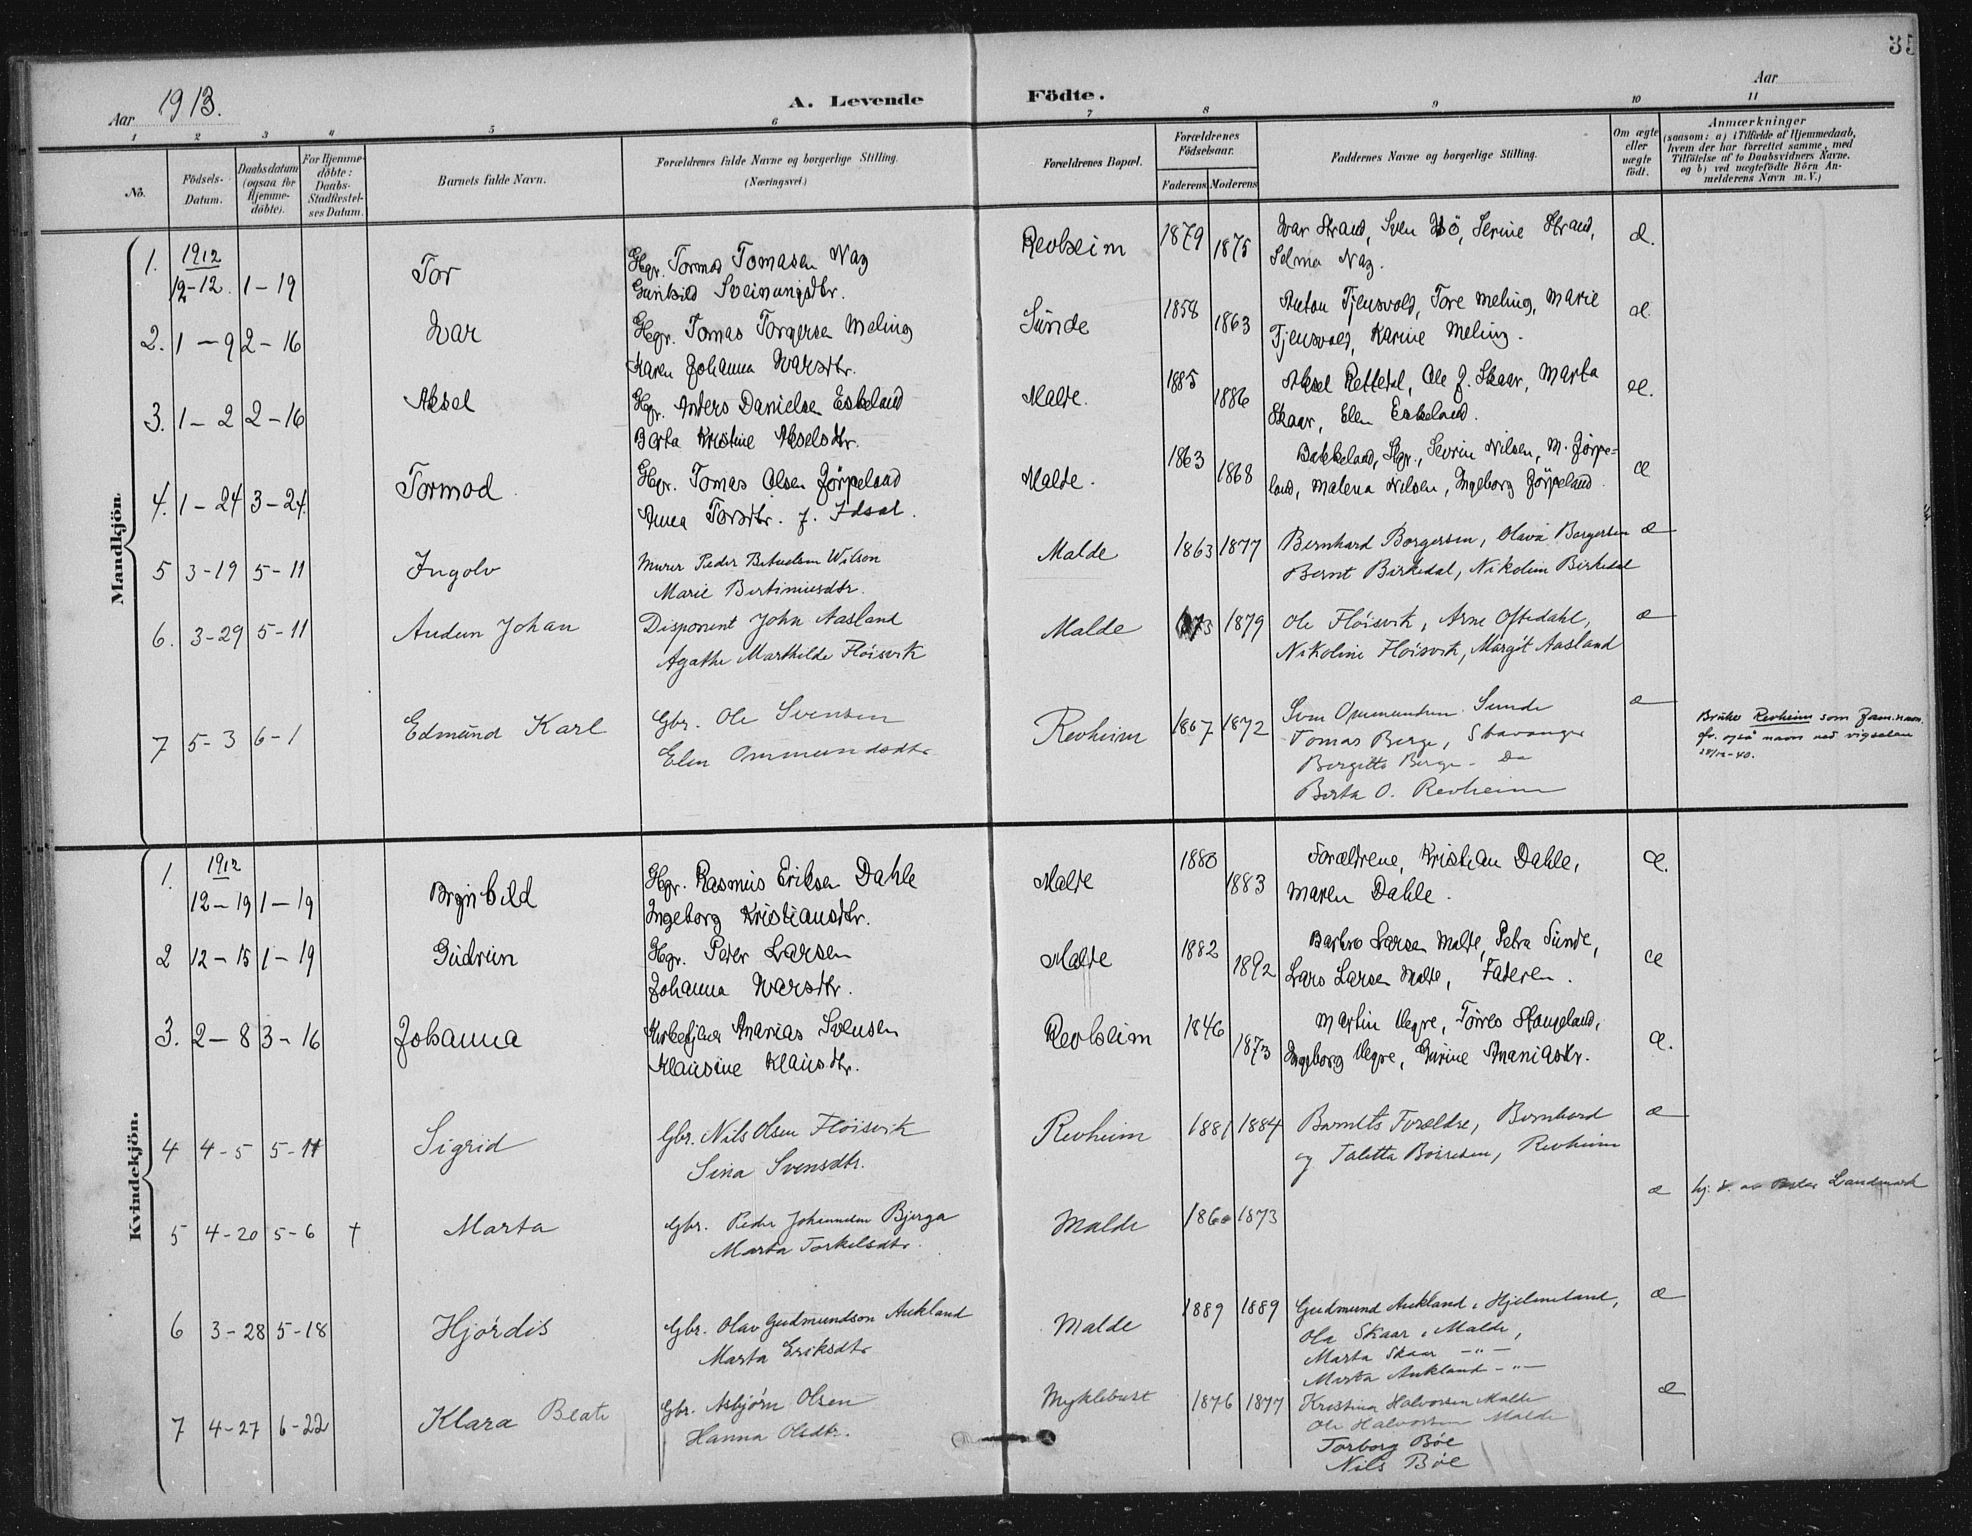 35
Aar 1913.
A. Levende Födte.
Aar
1 2 3 4 5 6 7 8 9 10 11
No.
Födsels-Datum.
Daabsdatum (ogsaa for Hjemme-döbte).
For Hjemme-döbte: Daabs-Stadfæstel-ses Datum.
Barnets fulde Navn.
Forældrenes fulde Navne og borgerlige Stilling.
(Næringsvei.)
Forældrenes Bopæl.
Forældrenes Födselsaar.
Faderens Moderens
Faddernes Navne og borgerlige Stilling.
Om ægte eller uægte födt.
Anmærkninger
(saasom: a) i Tilfælde af Hjemmedaab,
hvem der har forrettet samme, med
Tilföielse af to Daabsvidners Navne.
og b) ved uægtefödte Börn An-
melderens Navn m. V.)
Mandkjön.
1. 1912 12-12. 1-19 Tor
Hgr. Tormod Tomasen Nag
Gunhild Sveinungsdtr.
Revheim 1879 1875
Ivar Strand, Sven Bö, Serine Strand,
Selma Nag. æ.
2. 1-9 2-16 Ivar
Hgr. Tomas Torgersen Meling
Karen Johanna Ivarsdtr.
Sunde 1858 1863
Anton Tjensvold, Tore Meling, Marie
Tjensvold, Karine Meling. æ.
3. 1-2 2-16 Aksel
Hgr. Anders Danielsen Eskeland
Berta Kristine Akselsdtr.
Malde. 1885 1886
Aksel Rettedal, Ole J. Skaar, Marta
Skaar, Elen Eskeland. æ.
4. 1-24 3-24. Tormod
Hgr. Tomas Olsen Jörpeland
Anna Torsdtr. f. Idsal.
Malde. 1863 1868
Bakkeland, Hgr., Sevrin Nilsen, M. Jörpe-
land, Malena Nilsen, Ingeborg Jörpeland. æ
5 3-19 5-11 Ingolv
Murer Peder Betuelsen Wilson
Marie Bertiniusdtr.
Malde 1863 1877
Bernhard Borgersen, Olava Borgersen
Bernt Birkedal, Nikoline Birkedal æ
6. 3-29 5-11 Audun Johan
Disponent John Aasland
Agathe Marthilde Flöisvik
Malde 1873 1879
Ole Flöisvik, Arne Oftedahl,
Nikoline Flöisvik, Margit Aasland æ
7 5-3 6-1 Edmund Karl
Gbr. Ole Svensen
Elen Ommundsdtr
Revheim 1867 1872
Sven Ommundsen Sunde
Tomas Berge, Stavanger
Bergitte Berge - Do
Berta O. Revheim æ
Bruker Revheim som fam.navn
også navn ved vigselen
-40.
Kvindekjön.
1. 1912 12-19 1-19 Brynhild
Hgr. Rasmus Eriksen Dahle
Ingeborg Kristiansdtr.
Malde 1880 1883
Forældrene, Kristian Dahle,
Maren Dahle. æ.
2 12-15 1-19 Gudrun
Hgr. Peder Larsen
Johanna Ivarsdtr.
Malde 1882 1892
Barbro Larsen Malde, Petra Sunde,
Lars Larsen Malde, Faderen. æ
3. 2-8 3-16 Johanna
Kirketjener Ananias Svensen
Klausine Klausdtr.
Revheim 1846 1873
Martin Vegre, Törres Haugeland,
Ingeborg Vegre, Gurine Ananiasdtr. æ.
4 4-5 5-11 Sigrid
Gbr. Nils Olsen Flöisvik
Sina Svensdtr.
Revheim 1881 1884
Barnets Forældre, Bernhard
og Taletta Börresen, Revheim æ
5 4-20 5-6 † Marta
Gbr. Peder Johannesen Bjerga
Marta Torkelsdtr.
Malde 1860 1873 æ
hj. d. av Pastor Landmark
6 3-28 5-18 Hjördis
Gbr. Olav Gudmundson Aukland
Marta Eriksdtr
Malde 1889 1889
Gudmund Aukland, Hjelmeland,
Ola Skaar, Malde,
Marta Skaar -"-
Marta Aukland -"- æ
7 4-27 6-22 Klara Beate
Gbr. Asbjörn Olsen
Hanna Olsdtr.
Myklebust 1876 1877
Kristina Halvorsen Malde
Ole Halvorsen Malde
Torborg Böe
Nils Böe æ